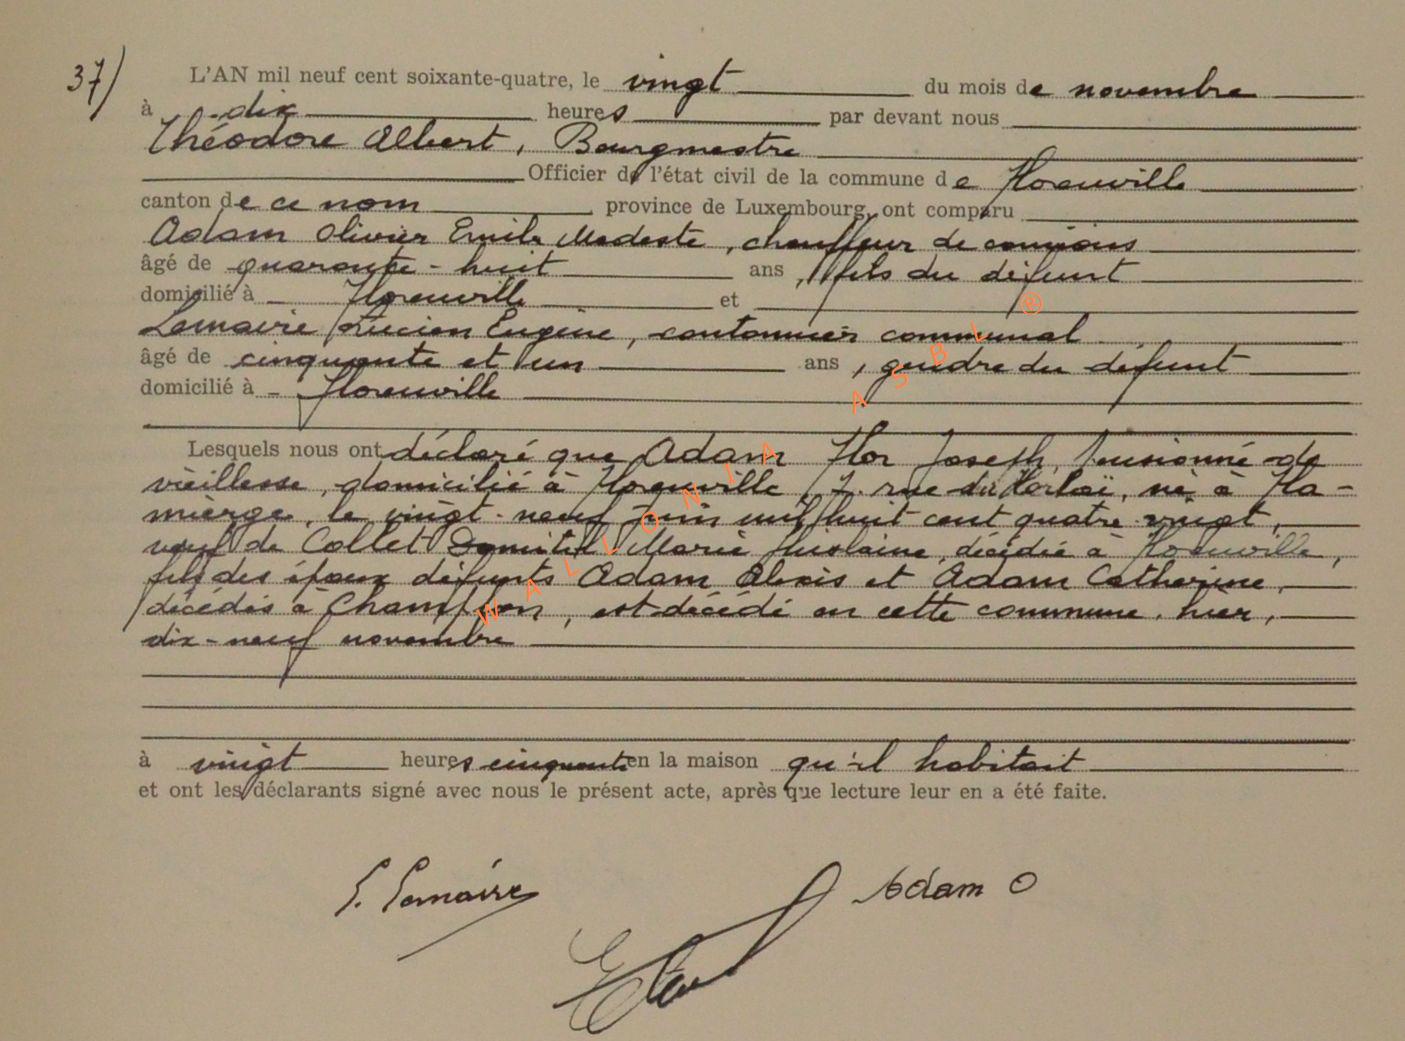 37/ L'AN mil neuf cent soixante-quatre, le vingt du mois de novembre
à dix heures par devant nous
Théodore Albert, Bourgmestre
Officier de l'état civil de la commune de Florenville
canton de ce nom province de Luxembourg, ont comparu
Adam Olivier Emile Modeste, chauffeur de camions
âgé de quarante-huit ans, fils du défunt
domicilié à Florenville et
Lemaire Lucien Eugène, cantonnier communal
âgé de cinquante et un ans, gendre du défunt
domicilié à Florenville
Lesquels nous ont déclaré que Adam Flor Joseph, Pensionné de
vieillesse, domicilié à Florenville, 7. rue du, né à Fla-
mierge, le vingt-neuf Juin mil huit cent quatre-vingt,
veuf de Collet Domitil Marie Ghislaine, décédée à Florenville,
fils des époux défunts Adam Alexis et Adam Catherine,
décédés à Champlon, est décédé en cette commune, hier,
dix-neuf novembre
à vingt heures cinquante en la maison qu'il habitait
et ont les déclarants signé avec nous le présent acte, après que lecture leur en a été faite.
L. Lemaire
Adam O
WALLONIA ASBL ®